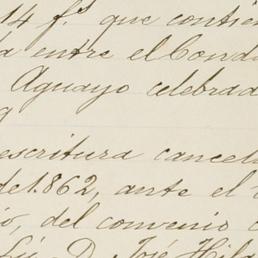 14 f.s que contien
a entre el Cond
Aguayo celebrad
escritura cancel
de 1.862, ante el
io, del convenio
D. José Hila